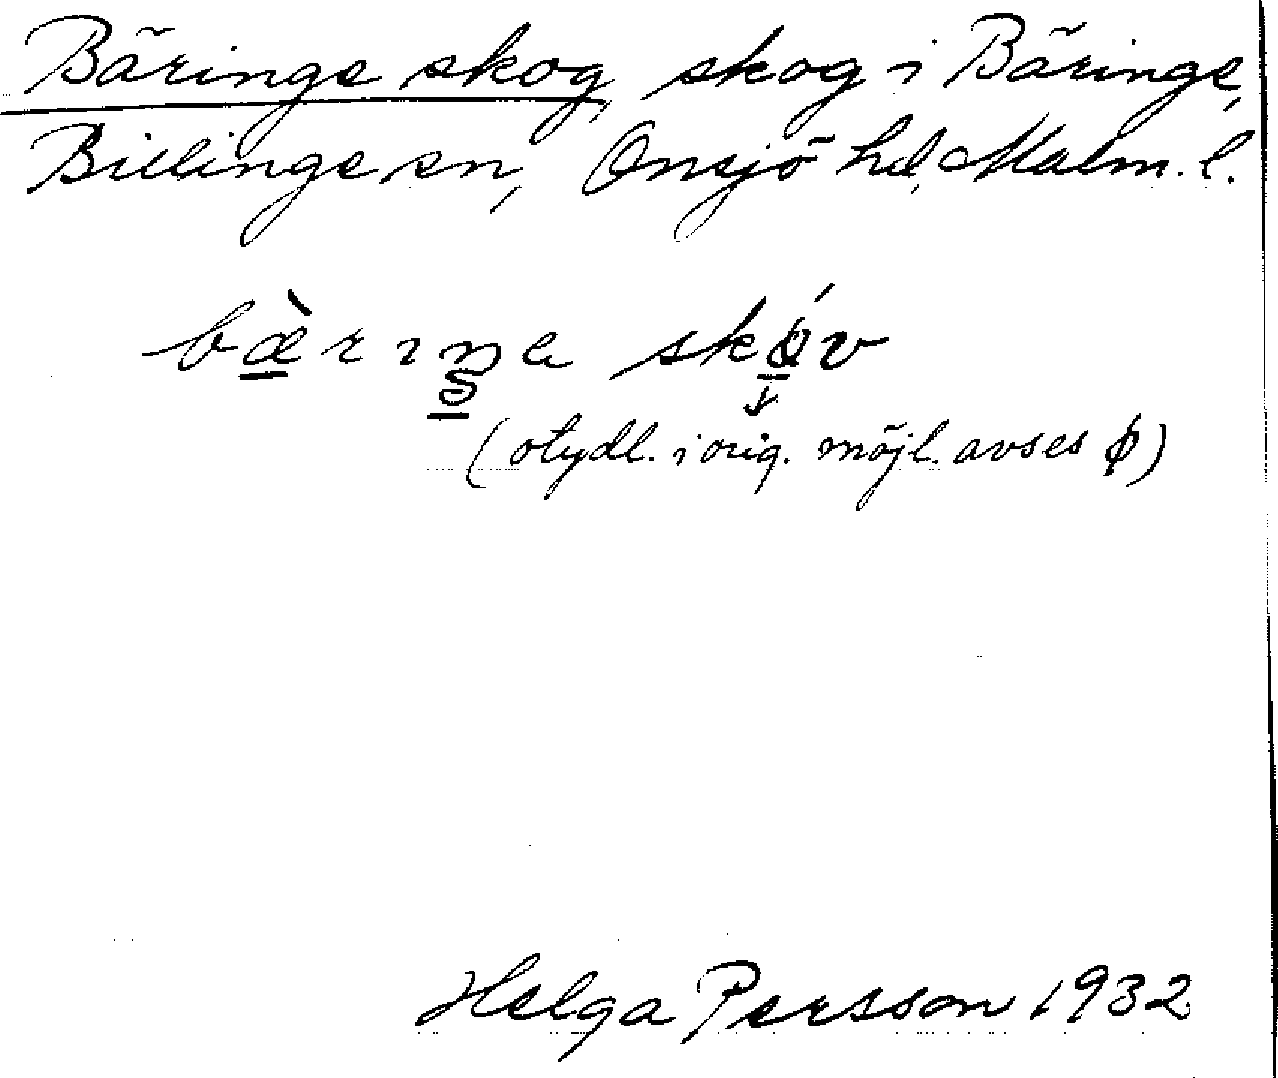 Bäringe skog, skog i Bäringe,
Billinge sn, Onsjö hd, Malm. l.
bæ̀rıŋa skǿv
(otydl. i orig. möjl. avses ϕ)
Helga Persson 1932